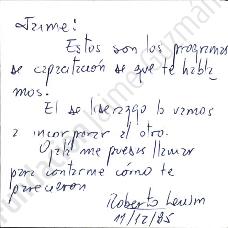 Jaime:
Estos son los programas
de capacitación de que te habla
mos.
El de liderazgo lo vamos
a incorporar al otro.
Ojalá me puedas llamar
para contarme cómo te
parecieron
Roberto
11/12/85